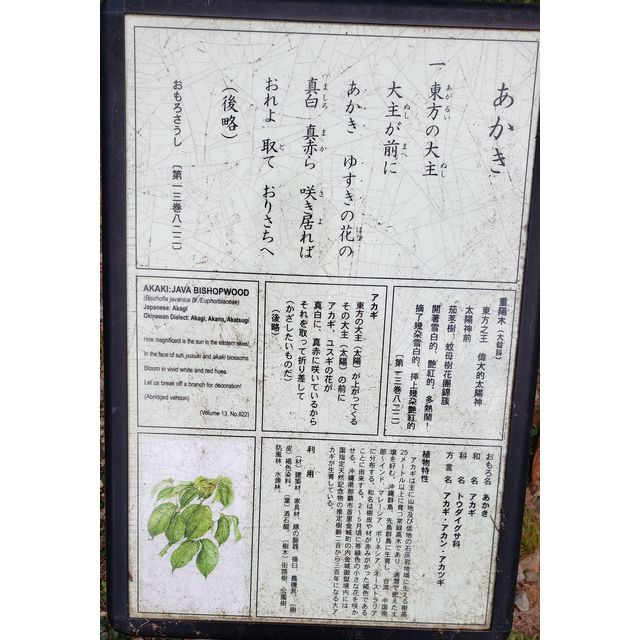 あかき
一 東方の大主
あがるい ぬし
大主が前に
ぬし まへ
あかき ゆすきの花の
はな
真白 真赤ら 咲き居れば
ましろ まか さ よ
おれよ 取て おりさちへ
と
（後略）
おもろさうし 〔第一三巻八二二〕
重陽木（大戟科）
東方之王 偉大的太陽神
太陽神前
茄苳樹，蚊母樹花團錦簇
開著雪白的，艶紅的，多熱鬧！
摘了幾朶雪白的，挿上幾朶艶紅的
〔第一三巻八二二〕
アカギ
東方の大主（太陽）が上がってくる
その大主（太陽）の前に
アカギ、ユスギの花が
真白に、真赤に咲いているから
それを取って折り差して
（かざしたいものだ）
（後略）
AKAKI:JAVA BISHOPWOOD
(Bischofia javanica Bl./Euphorbiaceae)
Japanese: Akagi
Okinawan Dialect: Akagi, Akann, Akatsugi
How magnificent is the sun in the eastern skies!
In the face of suh, yusuki and akaki blossoms
Bloom in vivid white and red hues
Let us break off a branch for decoration!
(Abridged version)
(Volume 13, No.822)
おもろ名 あかき
和 名 アカギ
科 名 トウダイグサ科
方言名 アカギ・アカン・アカツギ
植物特性
アカギは主に山地及び低地の石灰岩地域に生える樹高
25メートル以上に育つ常緑高木であり、適潤で肥えた土
壌を好む。沖縄群島、先島群島に生育し、台湾、中国南
部～インド、マレーシア、ポリネシア、オーストラリア
に分布する。和名は樹皮や材が赤みがかった褐色である
ことに由来する。2～5月頃に帯緑色の小さな花を咲か
せる。沖縄県那覇市首里金城町の内金城御嶽境内には、
国指定天然記念物の推定樹齢二百から三百年になる大ア
カギが生育している。
利 用
（材）建築材、家具材、膳の脚器、搗臼、農機具、（樹
皮）褐色染料、（葉）酒石酸、（樹木）街路樹、公園樹
防風林、水源林